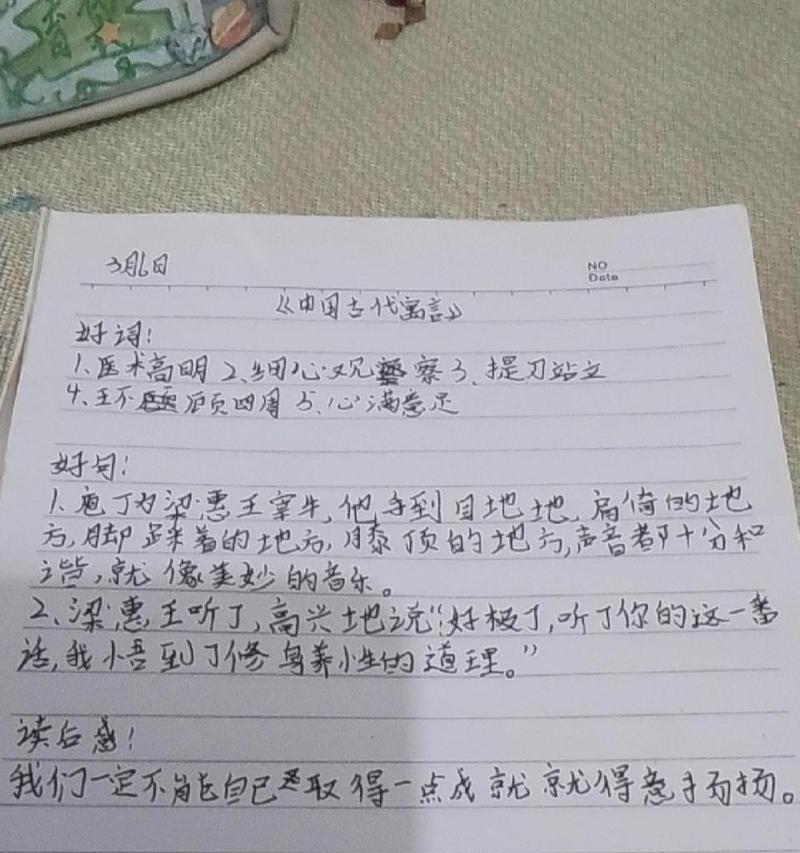 3月6日
NO
Date
《中国古代寓言》
好词:
1、医术高明 2、细心观察 3、提刀站立
4、环顾四周 5、心满意足
好句:
1、庖丁为梁惠王宰牛,他手到的地,肩倚的地
方,脚踩着的地方,膝顶的地方,声音都十分和
谐,就像美妙的音乐。
2、梁惠王听了,高兴地说“好极了,听了你的这一番
话,我悟到了修身养性的道理。”
读后感!
我们一定不能自己取得一点成就就得意扬扬。